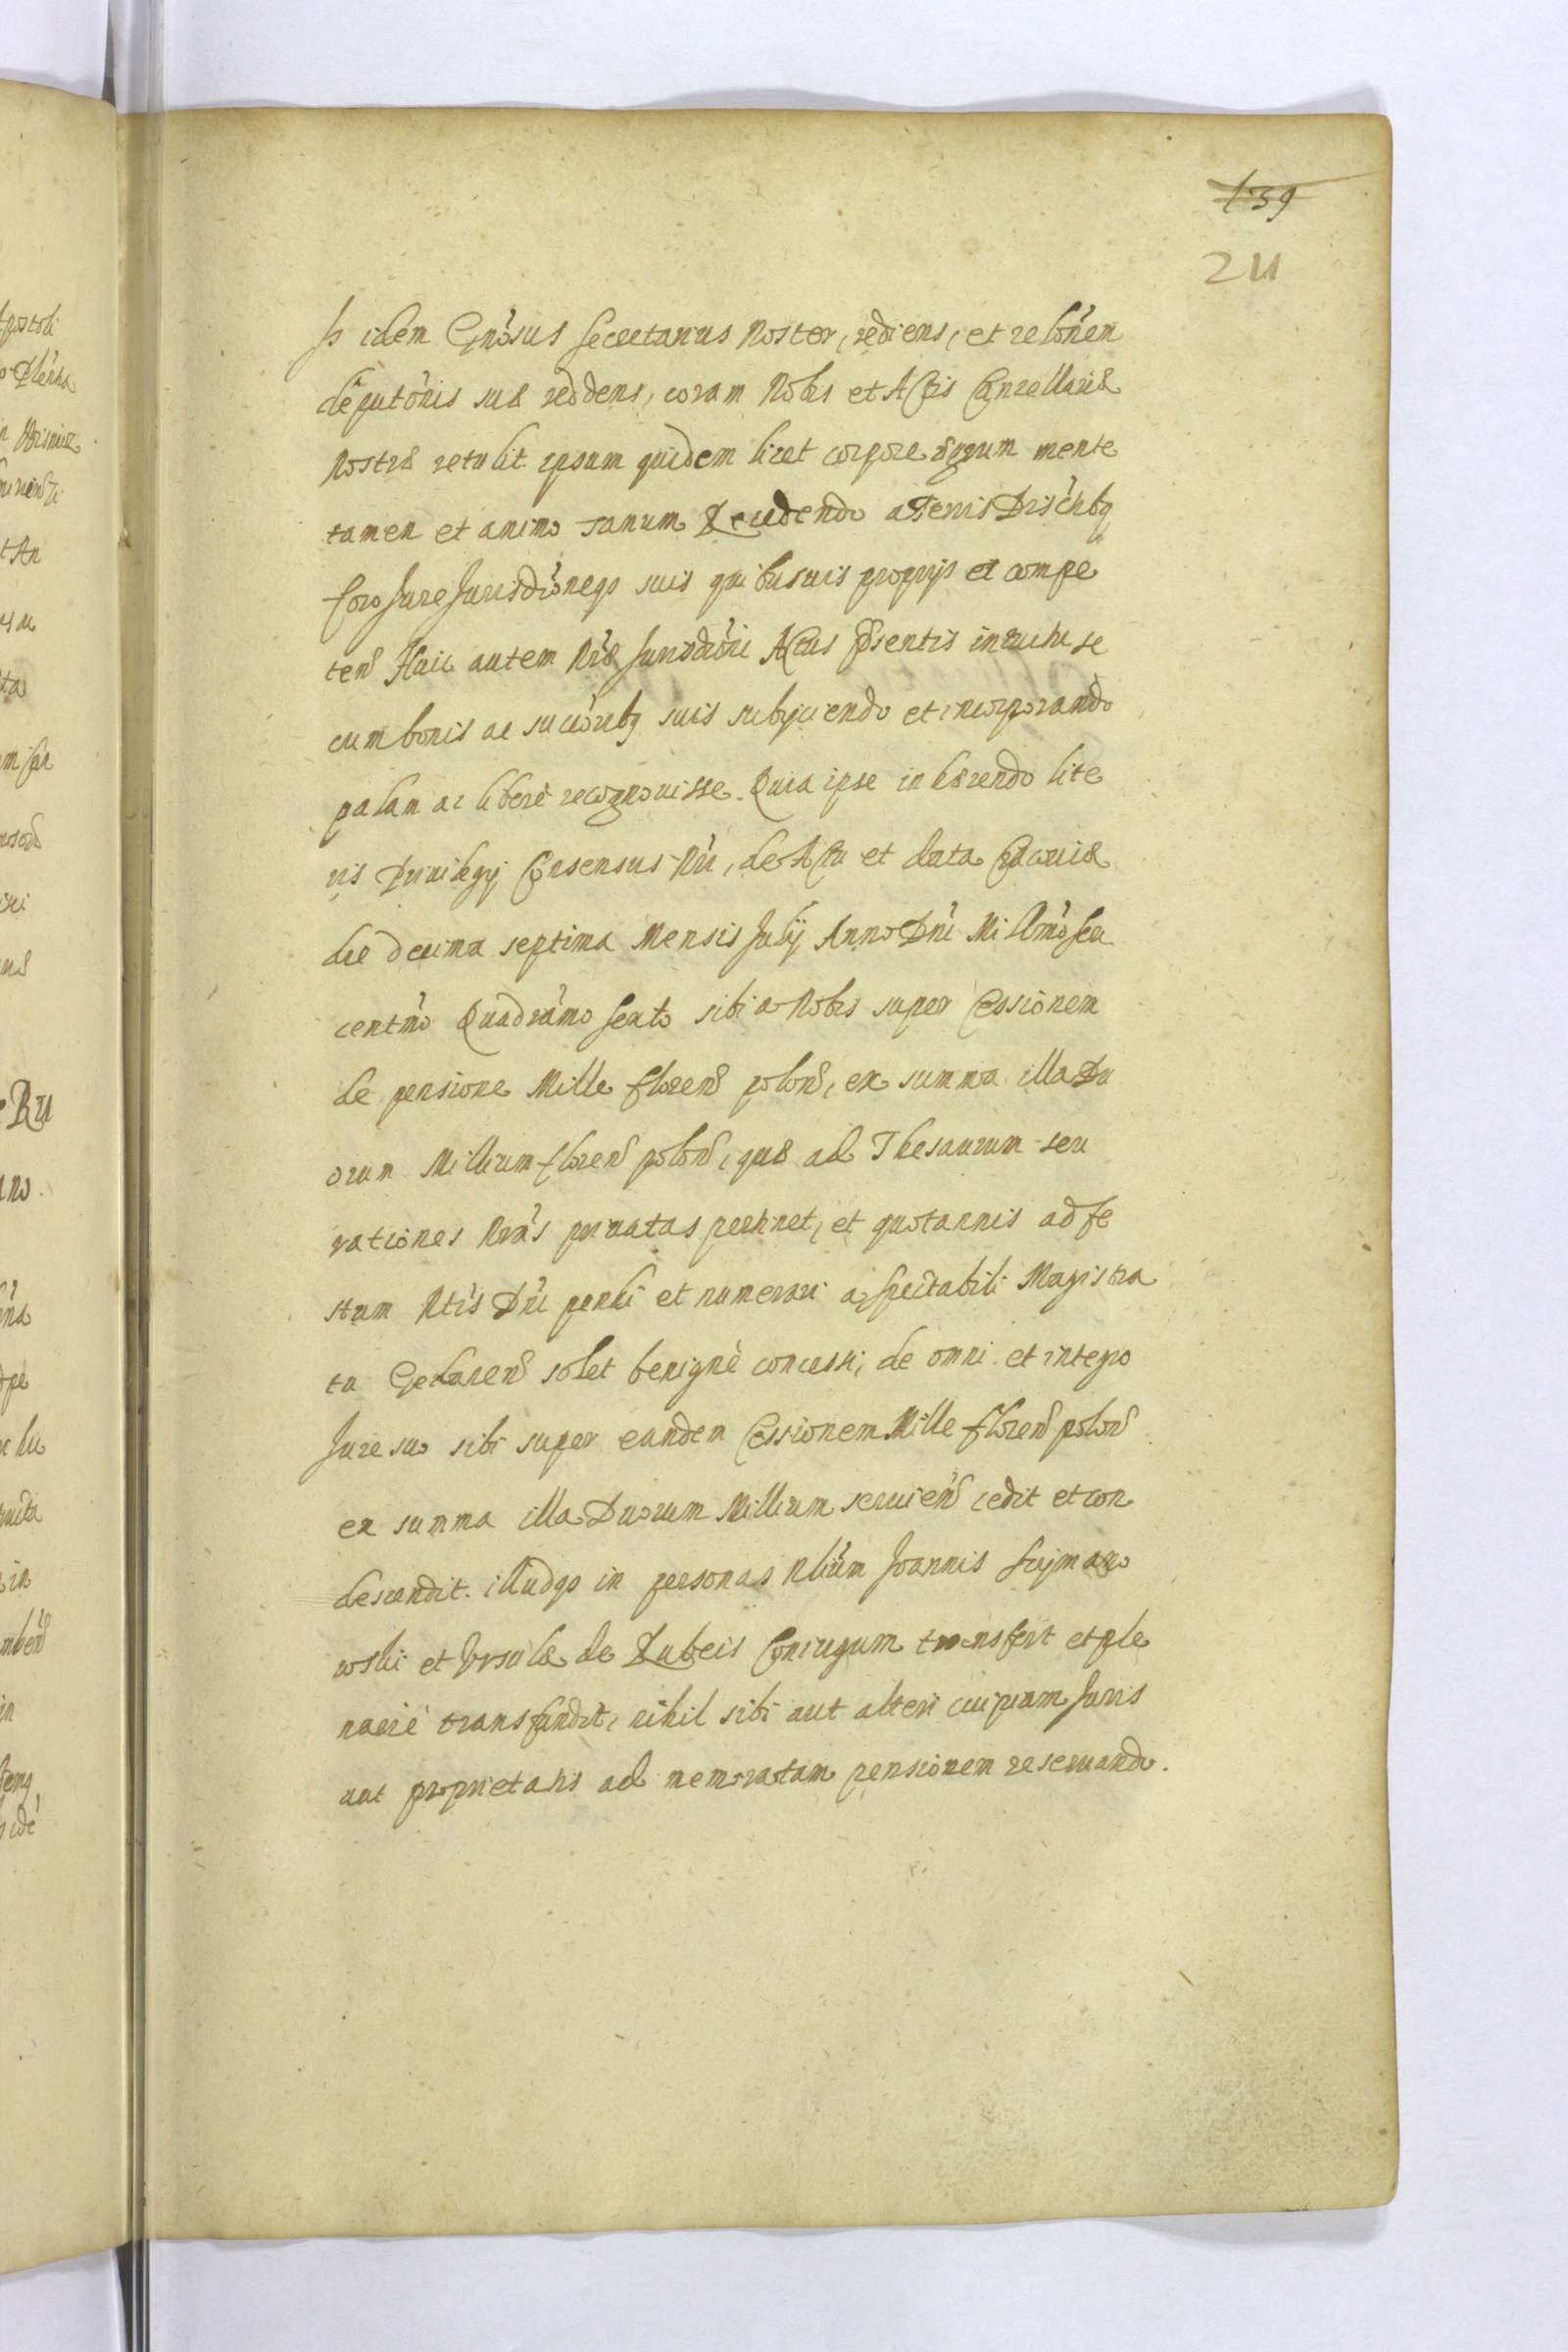 139
211
Is idem Gnosus Secretarius Noster, rediens, et relonem
deputonis suæ reddens, coram Nobis et Actis Cancellariæ
Nostræ retulit ipsum quidem licet corpore ægrum mente
tamen et animo sanum Recedendo a Terris Districtbq
foro Jure Jurisdioneqs suis quibusuis proprijs et compe
ten Huic autem Nræ Jurisdioni Actus Psentis intuitu se
cum bonis ac sucorubq suis subijciendo et incorporando
palam ac liberè recognouisse. Quia ipse inhærendo lite
ris Priuilegij Consensus Nri, de Actu et data Cracouiæ
die decima septima Mensis Julij Anno Dni Millmo sex
centmo Quadramo sexto sibi a Nobis super Cessionem
de pensione Mille floren polon, ex summa illa Du
orum Millium floren polon, quæ ad Thesaurum seu
rationes Nras priuatas pertinet, et quotannis ad fe
stum Ntis Dni pendi et numerari a spectabili Magistra
tu Gedanen solet benignè concessi, de omni et integro
Jure suo sibi super eandem Cessionem Mille floren polon
ex summa illa Duorum Millium seruien cedit et con
descendit. illudqs in personas Nlium Joannis Szymano
wski et Vrsulæ de Rubeis Coniugum transfert et ple
nariè transfundit, nihil sibi aut alteri cuipiam Juris
aut proprietatis ad memoratam pensionem reseruando.